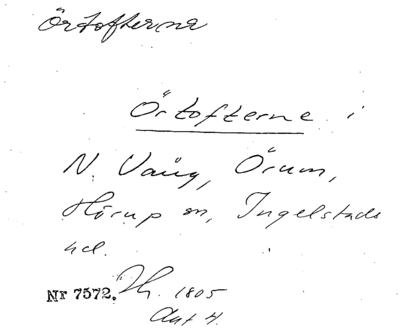 Örtofterne
Örtofterne i
N. Vång, Örum,
Hörup sn, Ingelstads
hd.
Nr 7572. Lh. 1805
Akt 4.